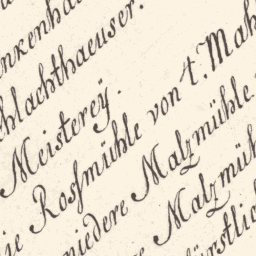 nkenha
chlachthaeuser.
Meisterey.
ie Rossmühle von 4. Mah
niedere Malzmühle
Malzmüh
ürstlic